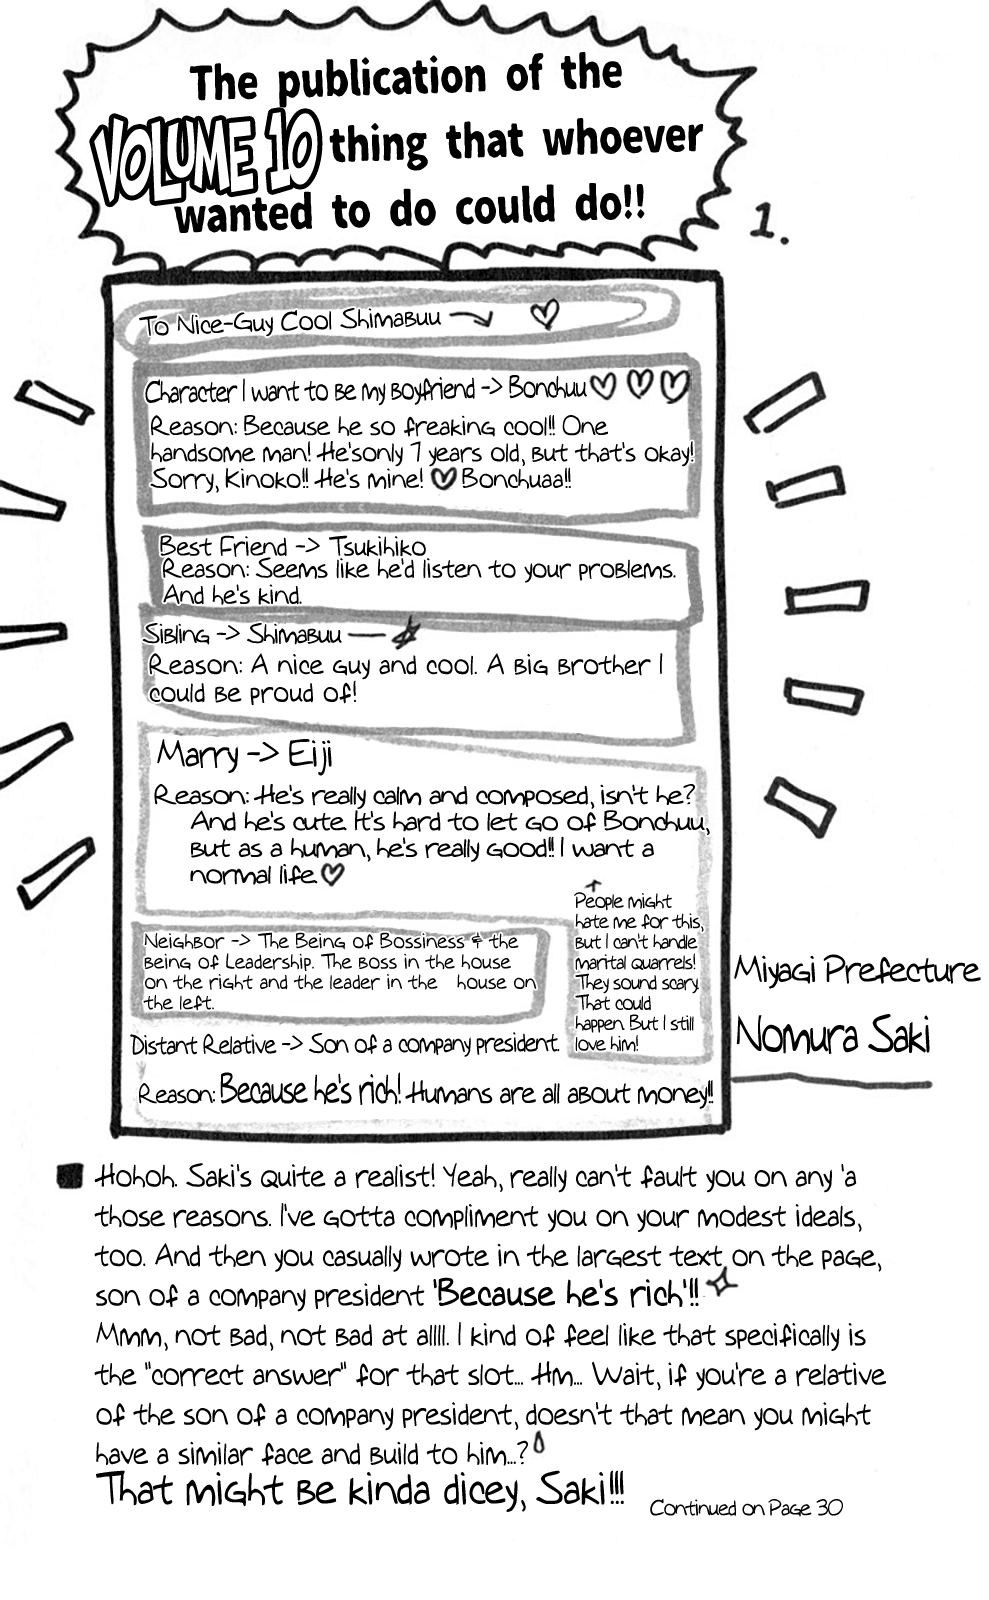 The publication of the
VOLUME 10 thing that whoever
wanted to do could do!!
1.
To Nice-Guy Cool Shimabuu
Character I want to be my boyfriend -> Bonchuu
Reason: Because he so freaking cool!! One
handsome man! He'sonly 7 years old, but that's okay!
Sorry, Kinoko!! He's mine! Bonchuaa!!
Best Friend -> Tsukihiko
Reason: Seems like he'd listen to your problems.
And he's kind.
Sibling -> Shimabuu
Reason: A nice guy and cool. A big brother I
could be proud of!
Marry -> Eiji
Reason: He's really calm and composed, isn't he?
And he's cute. It's hard to let go of Bonchuu,
but as a human, he's really good!! I want a
normal life.
People might
hate me for this,
but I can't handle
marital quarrels!
They sound scary.
That could
happen. But I still
love him!
Neighbor -> The Being of Bossiness & the
Being of Leadership. The boss in the house
on the right and the leader in the house on
the left.
Distant Relative -> Son of a company president.
Reason: Because he's rich! Humans are all about money!!
Miyagi Prefecture
Nomura Saki
Hohoh. Saki's quite a realist! Yeah, really can't fault you on any 'a
those reasons. I've gotta compliment you on your modest ideals,
too. And then you casually wrote in the largest text on the page,
son of a company president 'Because he's rich'!!
Mmm, not bad, not bad at allll. I kind of feel like that specifically is
the "correct answer" for that slot... Hm... Wait, if you're a relative
of the son of a company president, doesn't that mean you might
have a similar face and build to him...?
That might be kinda dicey, Saki!!!
Continued on Page 30